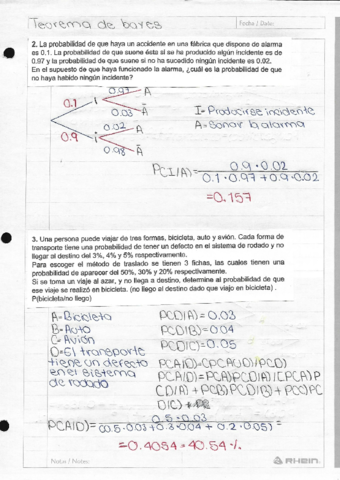 Teorema de bayes
Fecha / Date:
2. La probabilidad de que haya un accidente en una fábrica que dispone de alarma
es 0.1. La probabilidad de que suene ésta si se ha producido algún incidente es de
0.97 y la probabilidad de que suene si no ha sucedido ningún incidente es 0.02.
En el supuesto de que haya funcionado la alarma, ¿cuál es la probabilidad de que
no haya habido ningún incidente?
0.1 I 0.97 A
0.03 A̅
0.9 I̅ 0.02 A
0.98 A̅
I = Producirse incidente
A = Sonar la alarma
P(I/A) = 0.9 · 0.02
0.1 · 0.97 + 0.9 · 0.02
= 0.157
3. Una persona puede viajar de tres formas, bicicleta, auto y avión. Cada forma de
transporte tiene una probabilidad de tener un defecto en el sistema de rodado y no
llegar al destino del 3%, 4% y 5% respectivamente.
Para escoger el método de traslado se tienen 3 fichas, las cuales tienen una
probabilidad de aparecer del 50%, 30% y 20% respectivamente.
Si se toma un viaje al azar, y no llega a destino, determina al probabilidad de que
ese viaje se realizó en bicicleta. (no llego al destino dado que viajo en bicicleta) .
P(bicicleta/no llego)
A= Bicicleta
B= Auto
C= Avión
D= El transporte
tiene un defecto
en el sistema
de rodado
P(D|A) = 0.03
P(D|B) = 0.04
P(D|C) = 0.05
P(A|D) = (P(A∩D)/P(D)
P(A|D) = P(A)P(D|A)/(P(A)P
(D/A) + P(B)P(D|B) + P(C)P(
D|C)
P(A|D) = 0.5 · 0.03
(0.5 · 0.03 + 0.3 · 0.04 + 0.2 · 0.05)
= 0.4054 = 40.54 %
Nota / Notes:
RHEIN